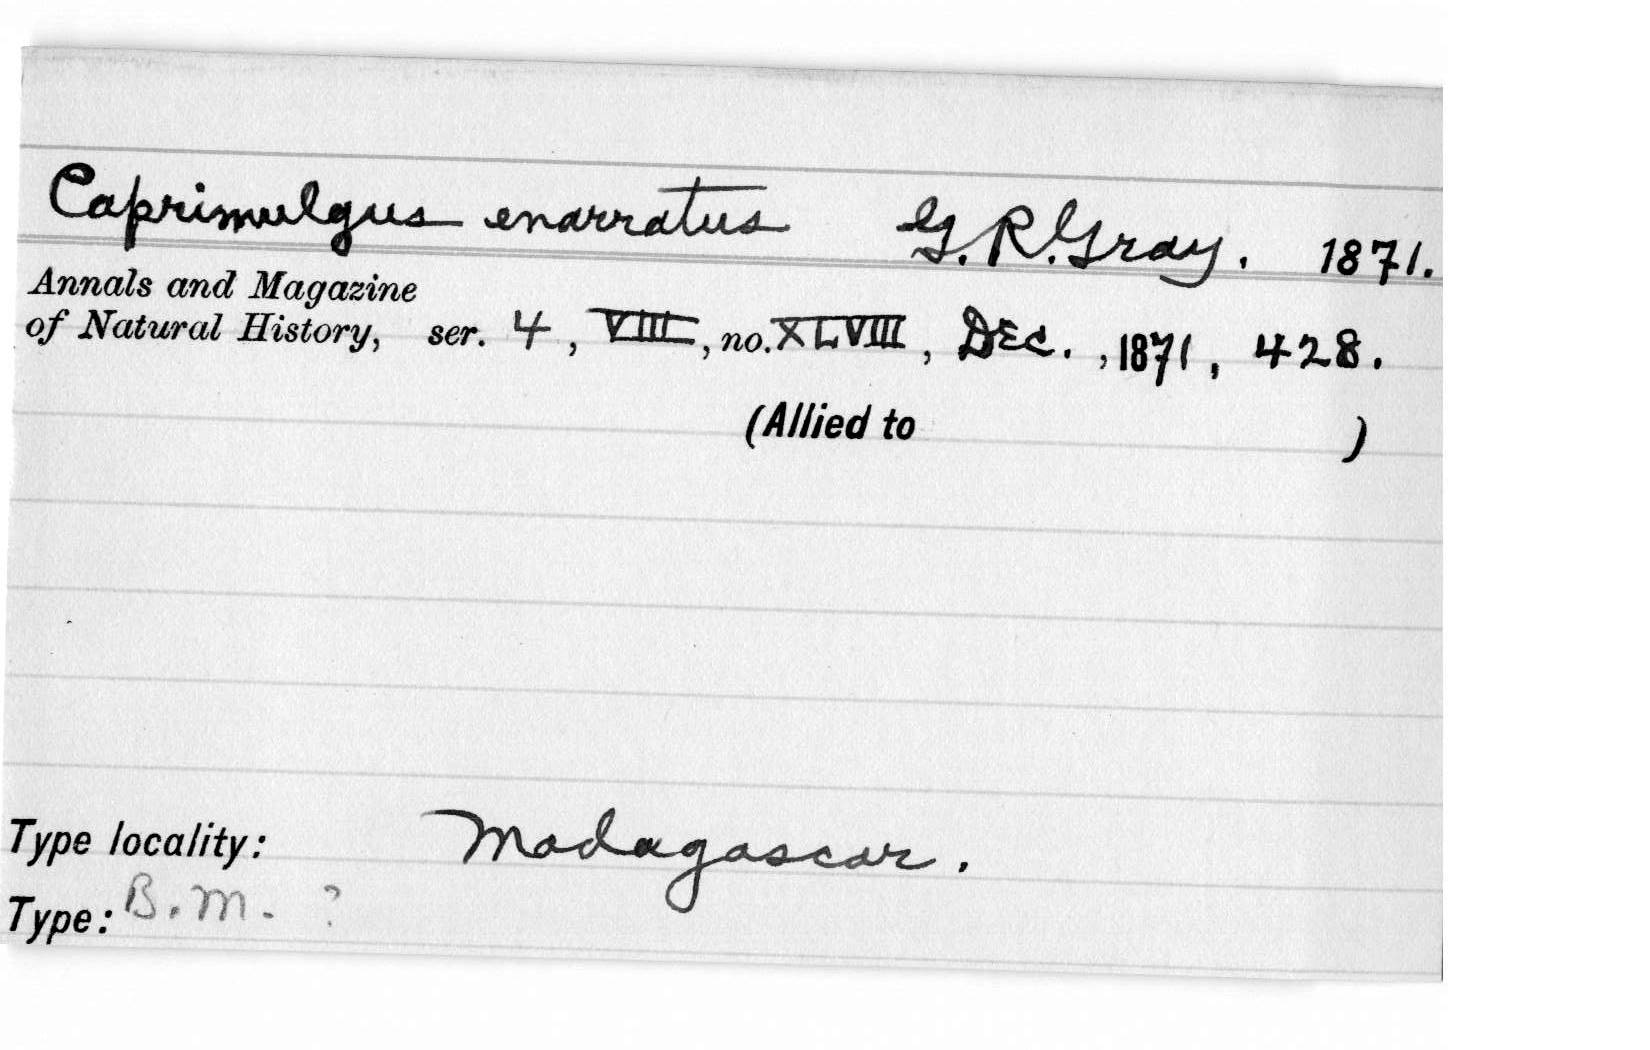 Caprimulgus enarratus G.R.Gray. 1871.
Annals and Magazine
of Natural History, ser. 4, VIII, no. XLVIII, Dec., 1871, 428.
(Allied to )
Type locality: Madagascar.
Type: B.M. ?